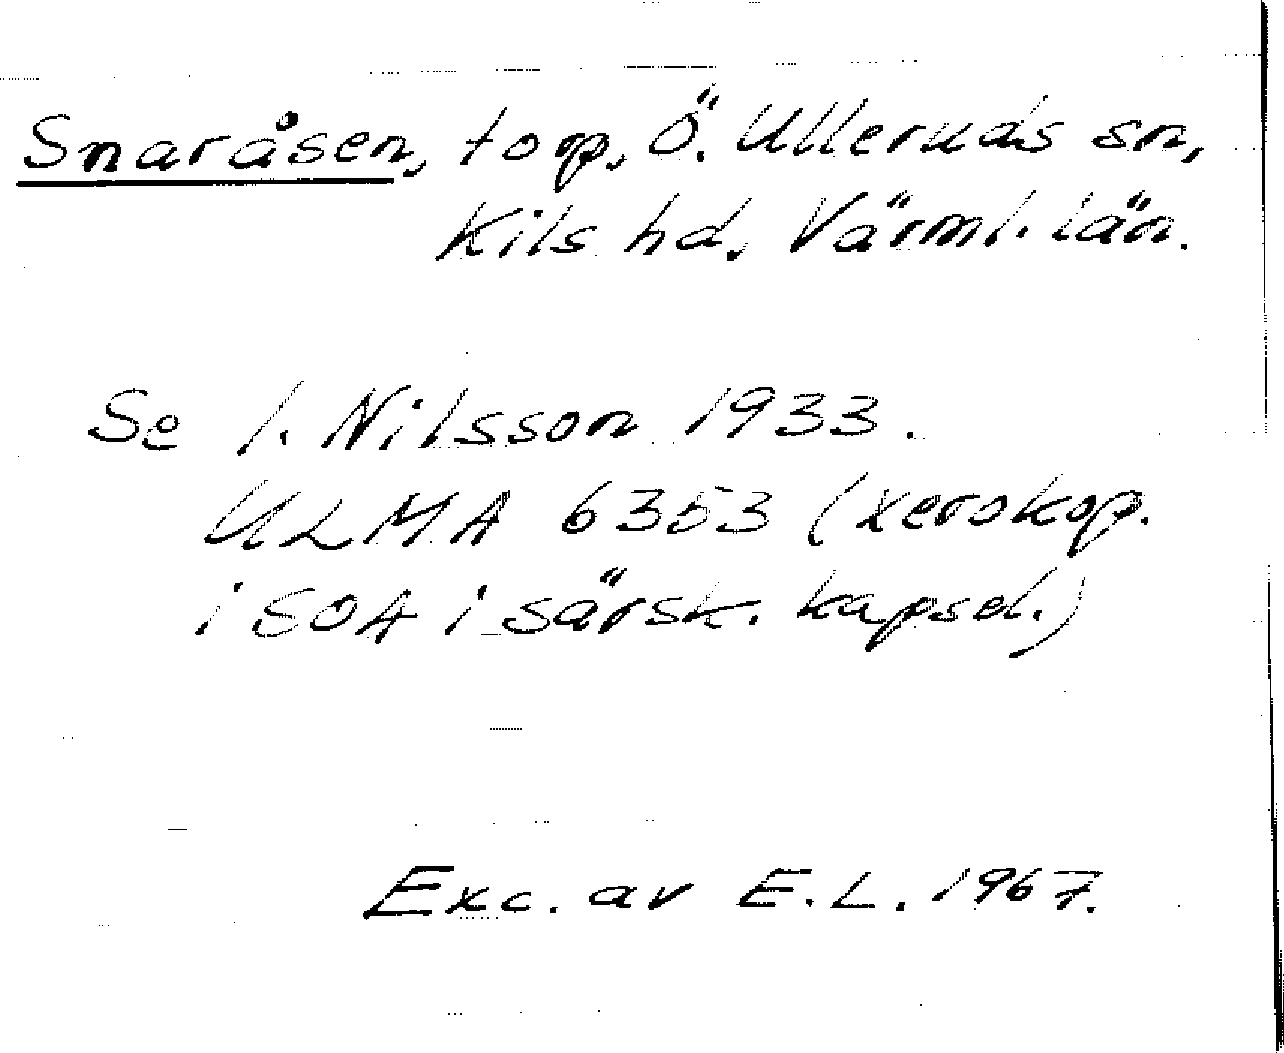 Snaråsen, torp, Ö. Ulleruds sn,
Kils hd, Värml. län.
Se I. Nilsson 1933.
ULMA 6353 (xerokop.
i SOA i särsk. kapsel.)
Exc. av E.L. 1967.